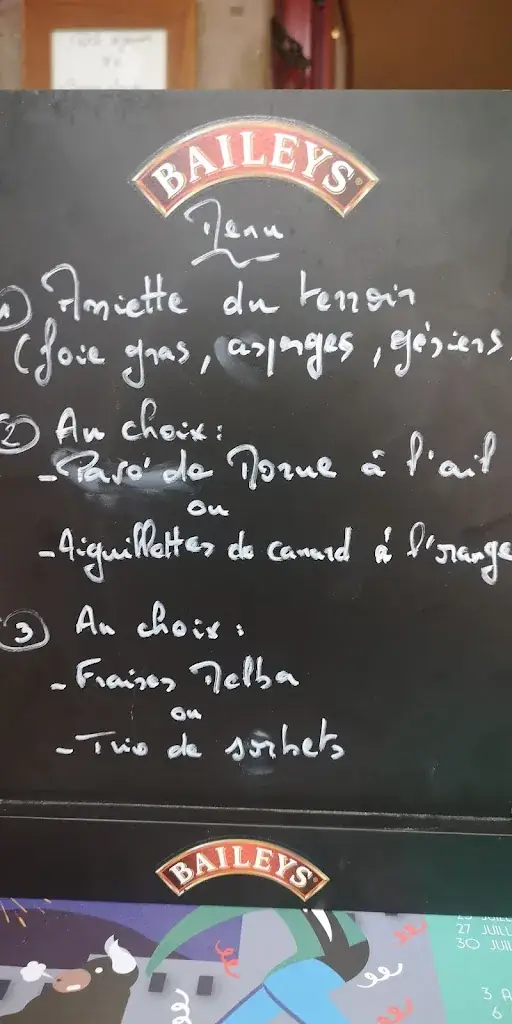 BAILEYS
Menu
1) Assiette du terroir
(foie gras, asperges, gésiers,
2) Au choix:
- Pavé de Morue à l'ail
ou
- Aiguillettes de canard à l'orange
3 Au choix:
- Fraises Melba
ou
- Trio de sorbets
BAILEYS
27 JUILL
30 JUIL
3 A
6